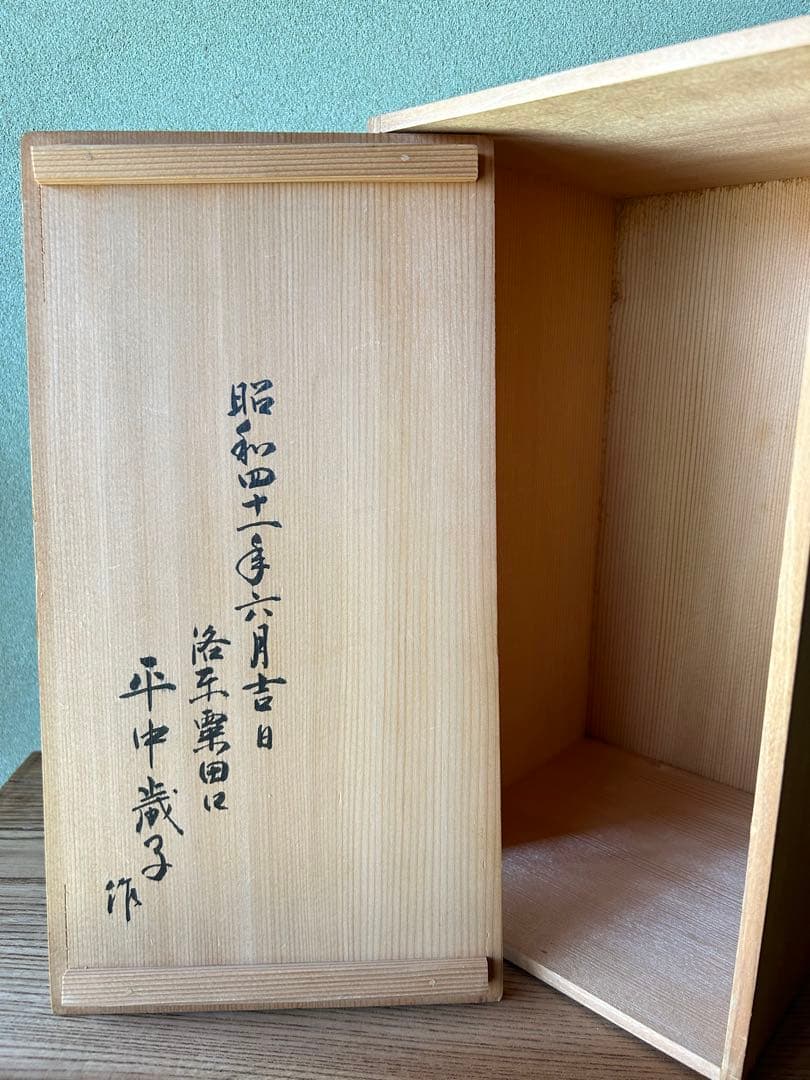 昭和四十一年六月吉日
洛东粟田口
平中歳子
作